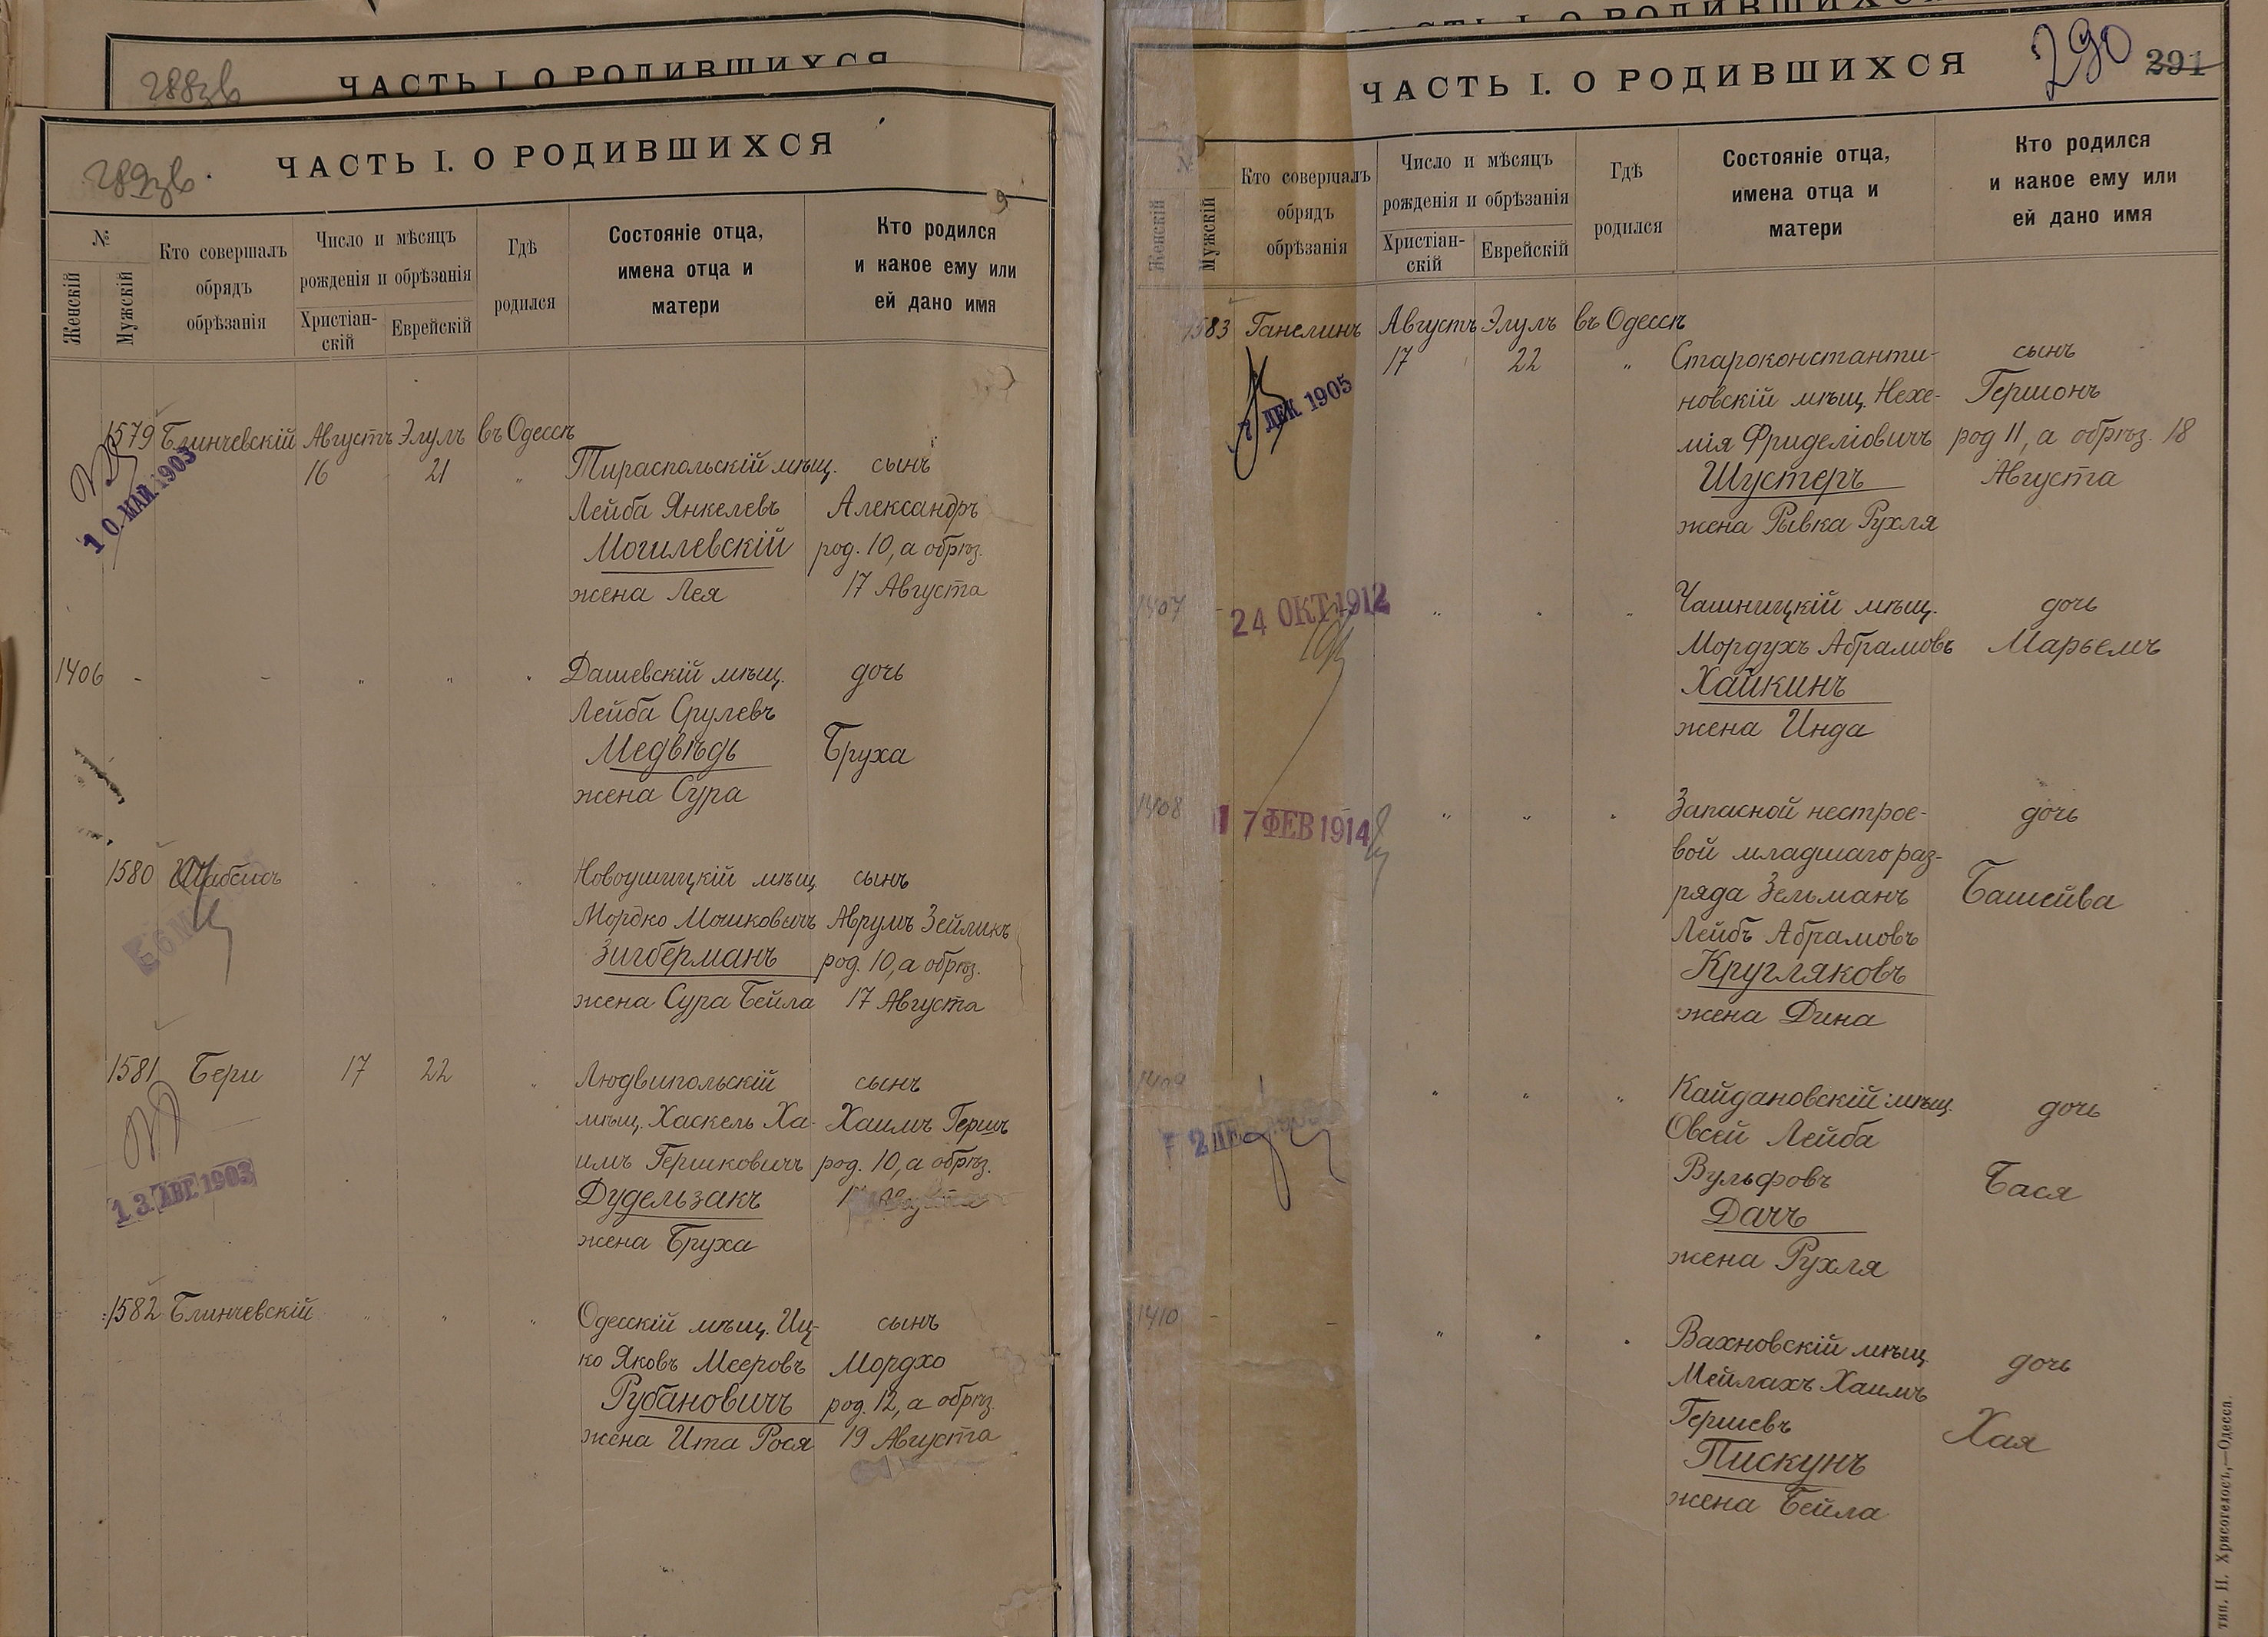 288зв
ЧАСТЬ I. О РОДИВШИХСЯ
289зв.
ЧАСТЬ I. О РОДИВШИХСЯ
№
Женскій
Мужскій
Кто совершалъ
обрядъ
обрѣзанія
Число и мѣсяцъ
рожденія и обрѣзанія
Христіан-
скій
Еврейскій
Гдѣ
родился
Состояніе отца,
имена отца и
матери
Кто родился
и какое ему или
ей дано имя
1579 Блинчевскій Августъ Элулъ въ Одессѣ
16 21 „ Тираспольскій мѣщ. сынъ
Лейба Янкелевъ Александръ
Могилевскій род. 10, а обрѣз.
жена Лея 17 Августа
10 МАЙ 1903
1406 - - „ „ „ Дашевскій мѣщ. дочь
Лейба Срулевъ
Медвѣдь Бруха
жена Сура
1580 Шабсисъ „ „ „ Новоушицкій мѣщ. сынъ
Мордко Мошковичъ Аврумъ Зейликъ
Зигберманъ род. 10, а обрѣз.
жена Сура Бейла 17 Августа
1581 Бери 17 22 „ Людвипольскій сынъ
мѣщ. Хаскель Ха- Хаимъ Гершъ
имъ Гершковичъ род. 10, а обрѣз.
Дудельзакъ 17 Августа
жена Бруха
13 АВГ 1903
1582 Блинчевскій „ „ „ Одесскій мѣщ. Иц- сынъ
ко Яковъ Мееровъ Мордхо
Рубановичъ род. 12, а обрѣз.
жена Ита Рося 19 Августа
ЧАСТЬ I. О РОДИВШИХСЯ
290 291
ЧАСТЬ I. О РОДИВШИХСЯ
№
Женскій
Мужскій
Кто совершалъ
обрядъ
обрѣзанія
Число и мѣсяцъ
рожденія и обрѣзанія
Христіан-
скій
Еврейскій
Гдѣ
родился
Состояніе отца,
имена отца и
матери
Кто родился
и какое ему или
ей дано имя
1583 Ганелинъ Августъ Элулъ въ Одессѣ
17 22 „ Староконстанти- сынъ
новскій мѣщ. Нехе- Гершонъ
мія Фриделіовичъ род 11, а обрѣз. 18
Шустеръ Августа
жена Рывка Рухля
ДЕК 1905
1407 - „ „ „ Чашницкій мѣщ. дочь
24 ОКТ 1912
Мордухъ Абрамовъ Марьемъ
Хайкинъ
жена Инда
1408 „ „ „ Запасной нестрое- дочь
17 ФЕВ 1914
вой младшаго раз-
ряда Зельманъ Башейва
Лейбъ Абрамовъ
Кругляковъ
жена Дина
1409 „ „ „ Кайдановскій мѣщ. дочь
Овсей Лейба
Вульфовъ Бася
Дачъ
жена Рухля
1410 - - „ „ „ Вахновскій мѣщ. дочь
Мейлахъ Хаимъ
Гершевъ Хая
Пискунъ
жена Бейла
тип. Н. Хрисогелосъ,—Одесса.